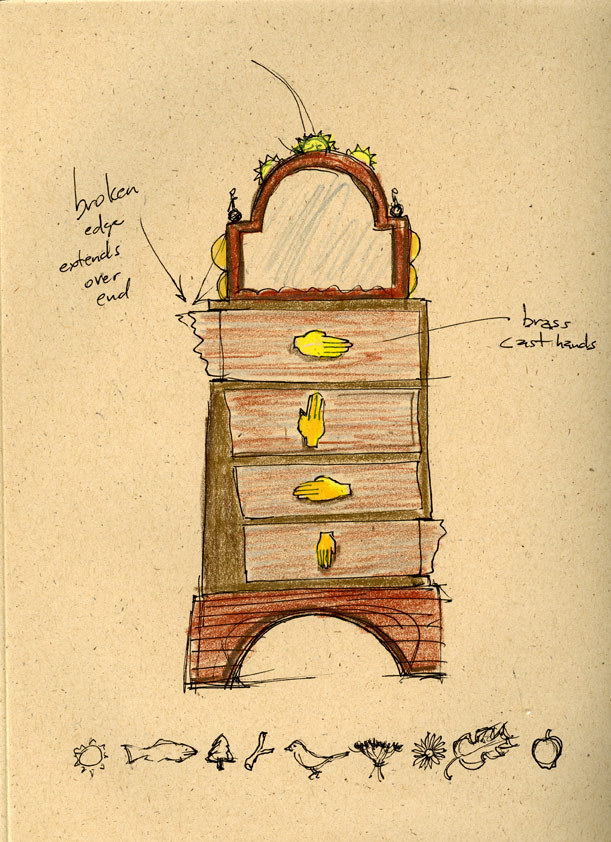 broken
edge
extends
over
end
brass
cast hands